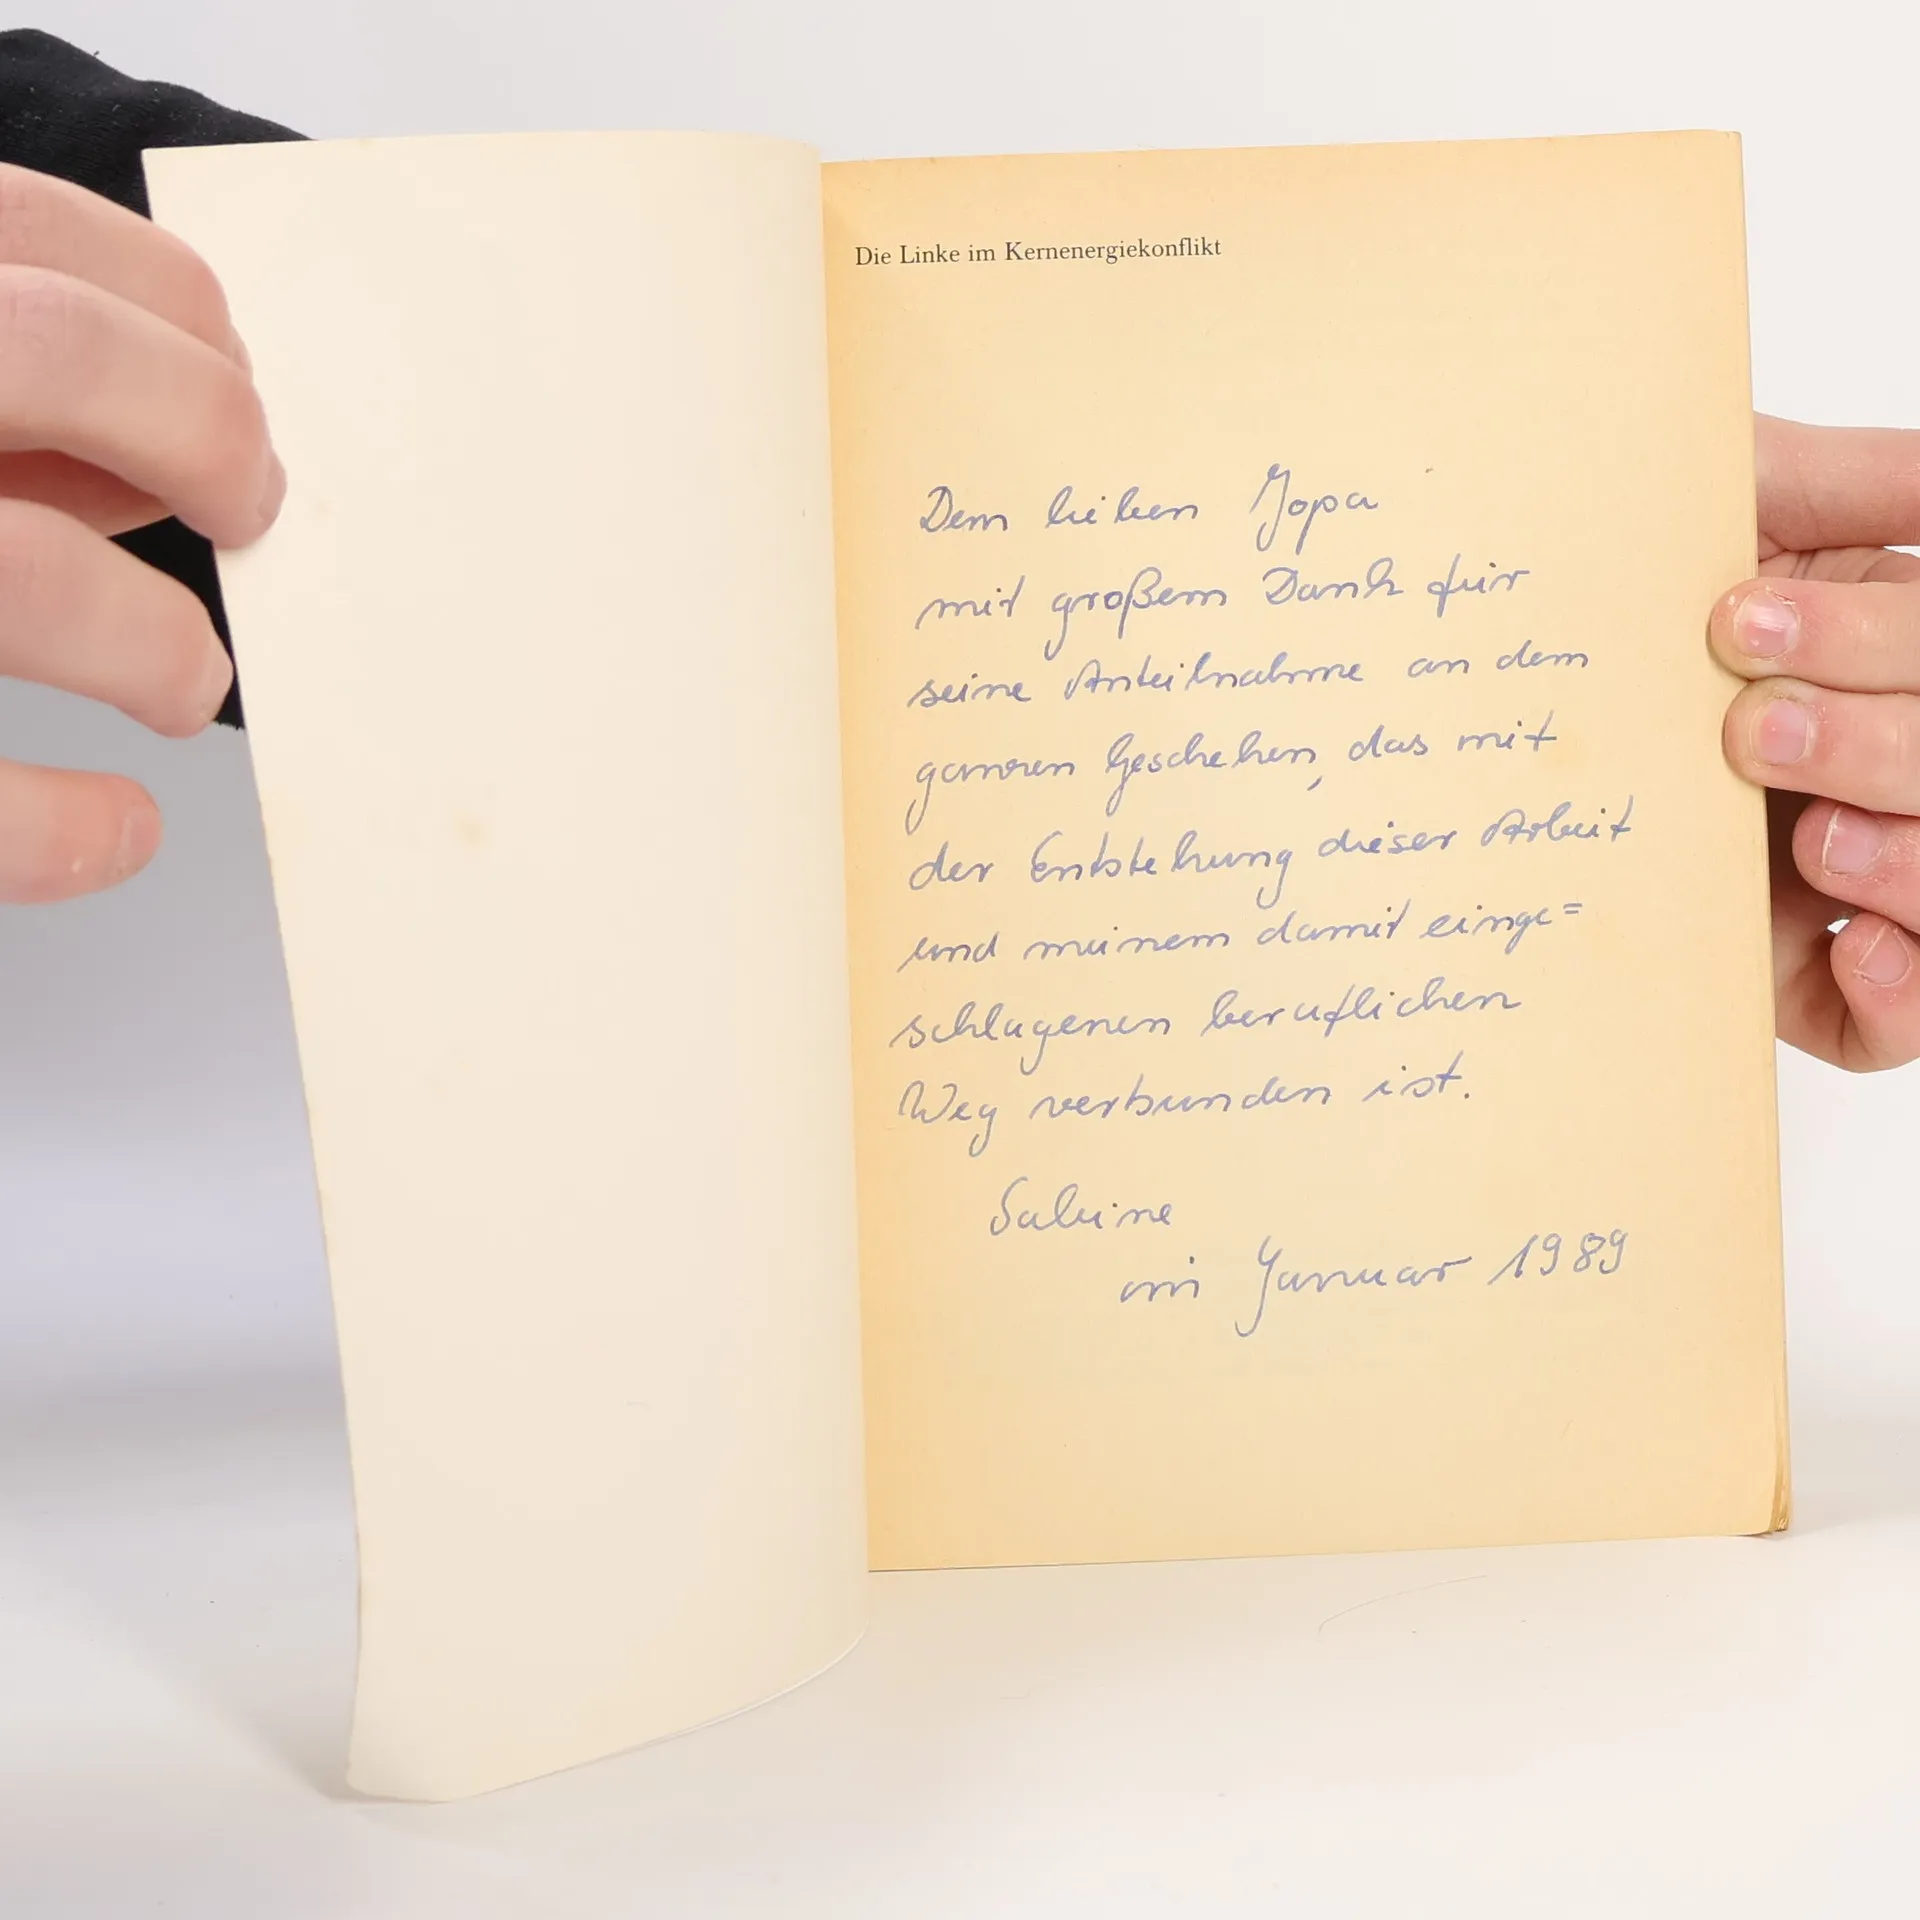 Die Linke im Kernenergiekonflikt
Dem lieben Jopa
mit großem Dank für
seine Anteilnahme an dem
ganzen Geschehen, das mit
der Entstehung dieser Arbeit
und meinem damit einge=
schlagenen beruflichen
Weg verbunden ist.
Sabine
im Januar 1989